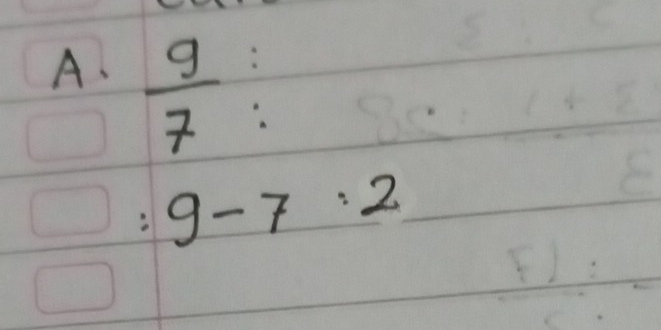 A. 9 :
7 :
: 9 - 7 : 2